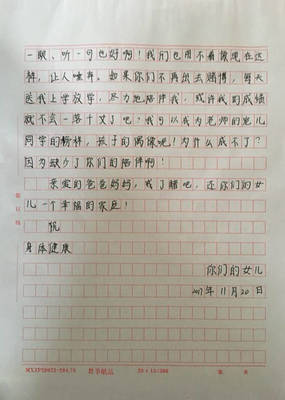 一眼、听一句也好啊！我们也用不着像现在这
样，让人唾弃。如果你们不再出去赌博，每天
送我上学放学，尽力地陪伴我，或许我的成绩
就不会一落千丈了吧？我可以成为老师的宠儿
同学的榜样，孩子的偶像呢！为什么成不了？
因为缺少了你们的陪伴啊！
亲爱的爸爸妈妈，戒了赌吧，还你们的女
儿一个幸福的家庭！
祝
身体健康
你们的女儿
2017年11月20日
20×15=300